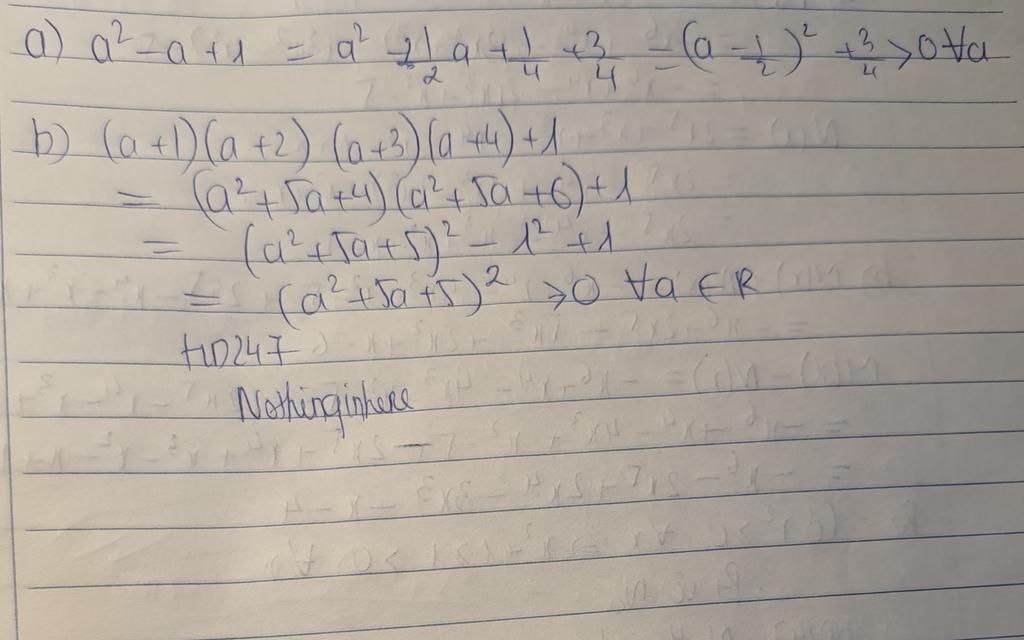 a) a² - a + 1 = a² - 2 1/2 a + 1/4 + 3/4 = (a - 1/2)² + 3/4 > 0 ∀a
b) (a+1)(a+2) (a+3)(a+4)+1
= (a²+5a+4)(a²+5a+6)+1
= (a²+5a+5)² - 1² + 1
= (a²+5a+5)² ≥ 0 ∀a ∈ R
HD247
Nothinginhere